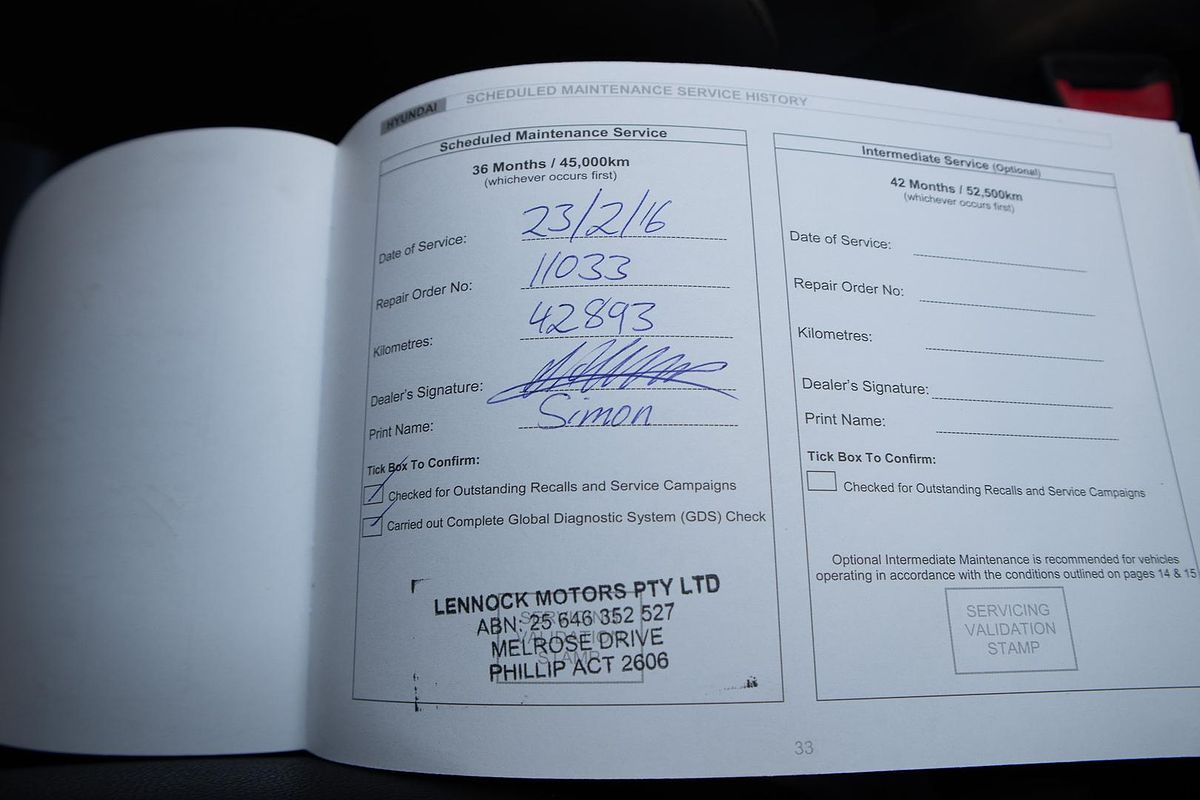 HYUNDAI SCHEDULED MAINTENANCE SERVICE HISTORY
Scheduled Maintenance Service
36 Months / 45,000km
(whichever occurs first)
Date of Service: 23/2/16
Repair Order No: 11033
Kilometres: 42893
Dealer's Signature:
Print Name: Simon
Tick Box To Confirm:
Checked for Outstanding Recalls and Service Campaigns
Carried out Complete Global Diagnostic System (GDS) Check
SERVICING
VALIDATION
STAMP
LENNOCK MOTORS PTY LTD
ABN: 25 646 352 527
MELROSE DRIVE
PHILLIP ACT 2606
Intermediate Service (Optional)
42 Months / 52,500km
(whichever occurs first)
Date of Service:
Repair Order No:
Kilometres:
Dealer's Signature:
Print Name:
Tick Box To Confirm:
Checked for Outstanding Recalls and Service Campaigns
Optional Intermediate Maintenance is recommended for vehicles
operating in accordance with the conditions outlined on pages 14 & 15
SERVICING
VALIDATION
STAMP
33